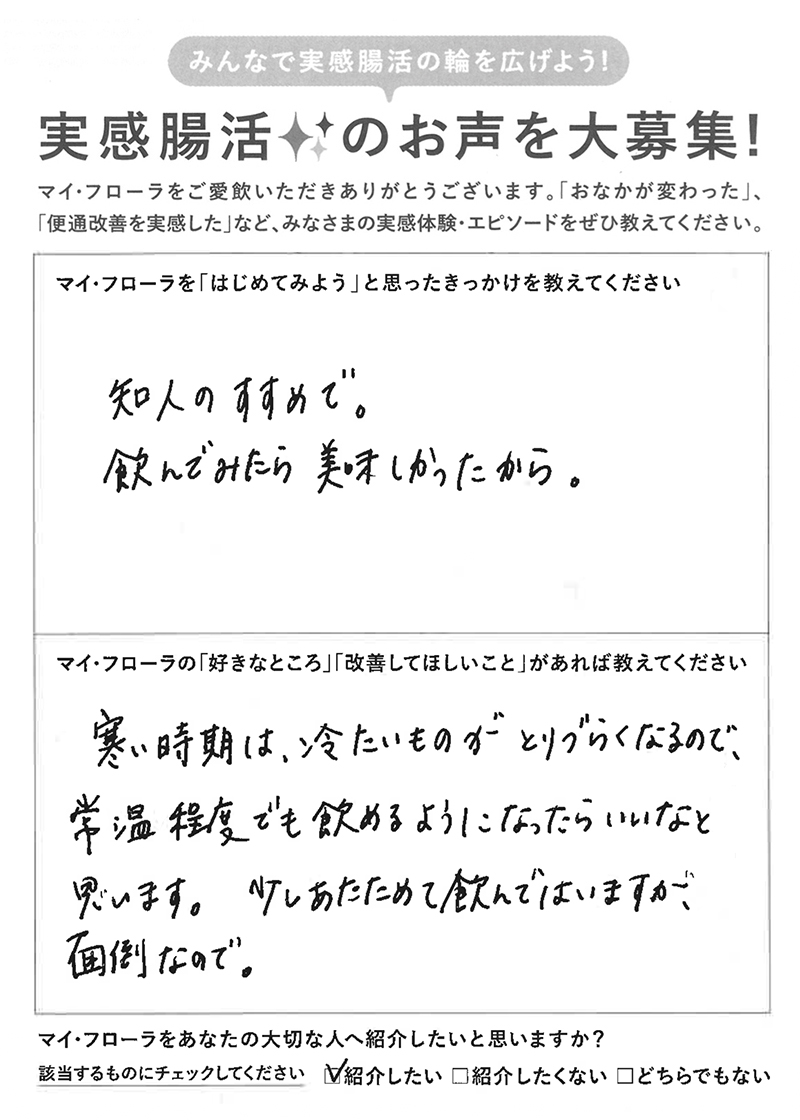 みんなで実感腸活の輪を広げよう!
実感腸活のお声を大募集!
マイ・フローラをご愛飲いただきありがとうございます。「おなかが変わった」、
「便通改善を実感した」など、みなさまの実感体験・エピソードをぜひ教えてください。
マイ・フローラを「はじめてみよう」と思ったきっかけを教えてください
知人のすすめで。
飲んでみたら美味しかったから。
マイ・フローラの「好きなところ」「改善してほしいこと」があれば教えてください
寒い時期は、冷たいものがとりづらくなるので、
常温程度でも飲めるようになったらいいなと
思います。 少しあたためて飲んではいますが、
面倒なので。
マイ・フローラをあなたの大切な人へ紹介したいと思いますか?
該当するものにチェックしてください ☑紹介したい □紹介したくない □どちらでもない